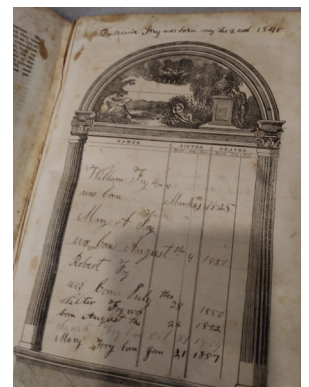 Fry was born may the 22nd 1848
NAMES BIRTHS DEATHS
William Fry was
was born March 1825
Mary A Fry
was born August the 4 1827
Robert Fry
was born July the 28 1850
Walter Fry was
born August the 26 1852
Fry born Oct 21
Mary Fry born Jan 21 1857